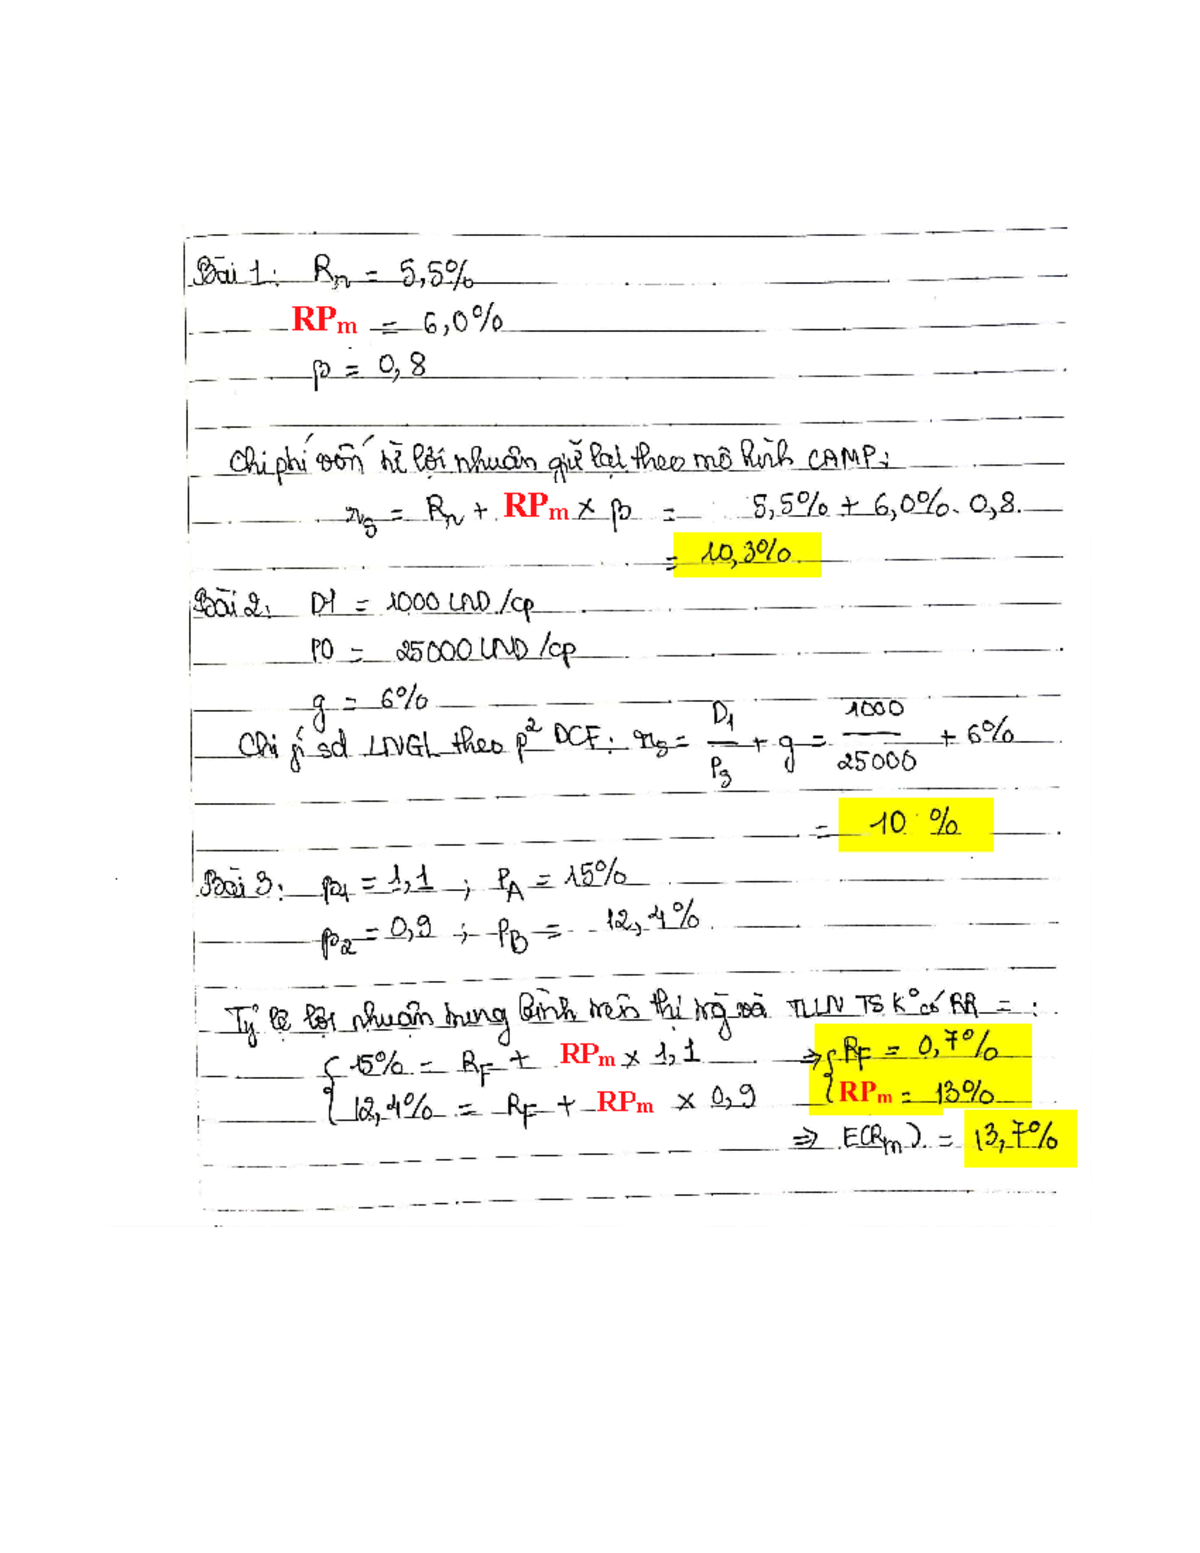 Bài 1: Rn = 5,5%
RPm = 6,0%
β = 0,8
Chi phí vốn từ lợi nhuận giữ lại theo mô hình CAMP:
rs = Rn + RPm x β = 5,5% + 6,0%. 0,8.
= 10,3%.
Bài 2: D1 = 1000 VND/cp
P0 = 25000 VND/cp
g = 6%
Chi f sd LNGL theo p² DCF: rs = D1/P3 + g = 1000/25000 + 6%
= 10 %
Bài 3: β1 = 1,1 ; PA = 15%
β2 = 0,9 ; PB = 12,4%
Tỷ lệ lợi nhuận trung bình trên thị trg và TLLN TS K° có RR = :
{ 15% = RF + RPm x 1,1 => { RF = 0,7%
{ 12,4% = RF + RPm x 0,9 { RPm = 13%
=> E(Rm) = 13,7%